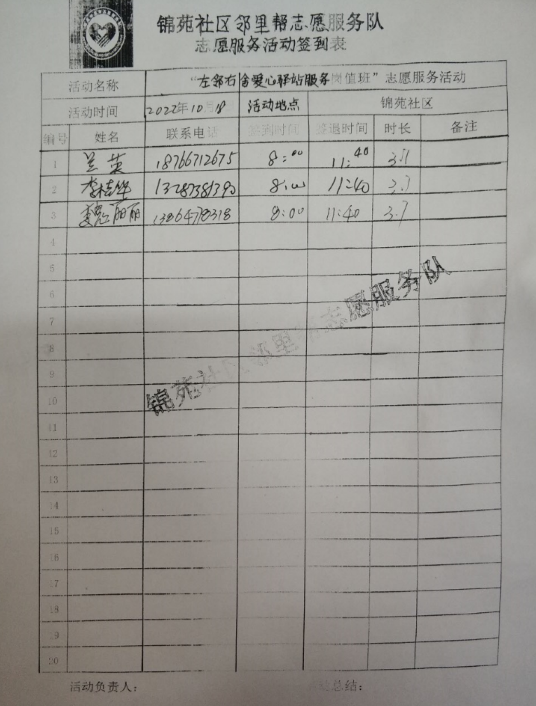 锦苑社区邻里帮志愿服务队
志愿服务活动签到表
活动名称 “左邻右舍爱心驿站服务岗值班”志愿服务活动
活动时间 2022年10月 活动地点 锦苑社区
编号 姓名 联系电话 签到时间 签退时间 时长 备注
1 兰英 18766712675 8:00 11:40 3.7
2 李桂华 8:00 11:40 3.7
3 丽丽 8:00 11:40 3.7
4
5
6
7
8
9
10
11
12
13
14
15
16
17
18
19
20
锦苑社区邻里帮志愿服务队
活动负责人: 总结: